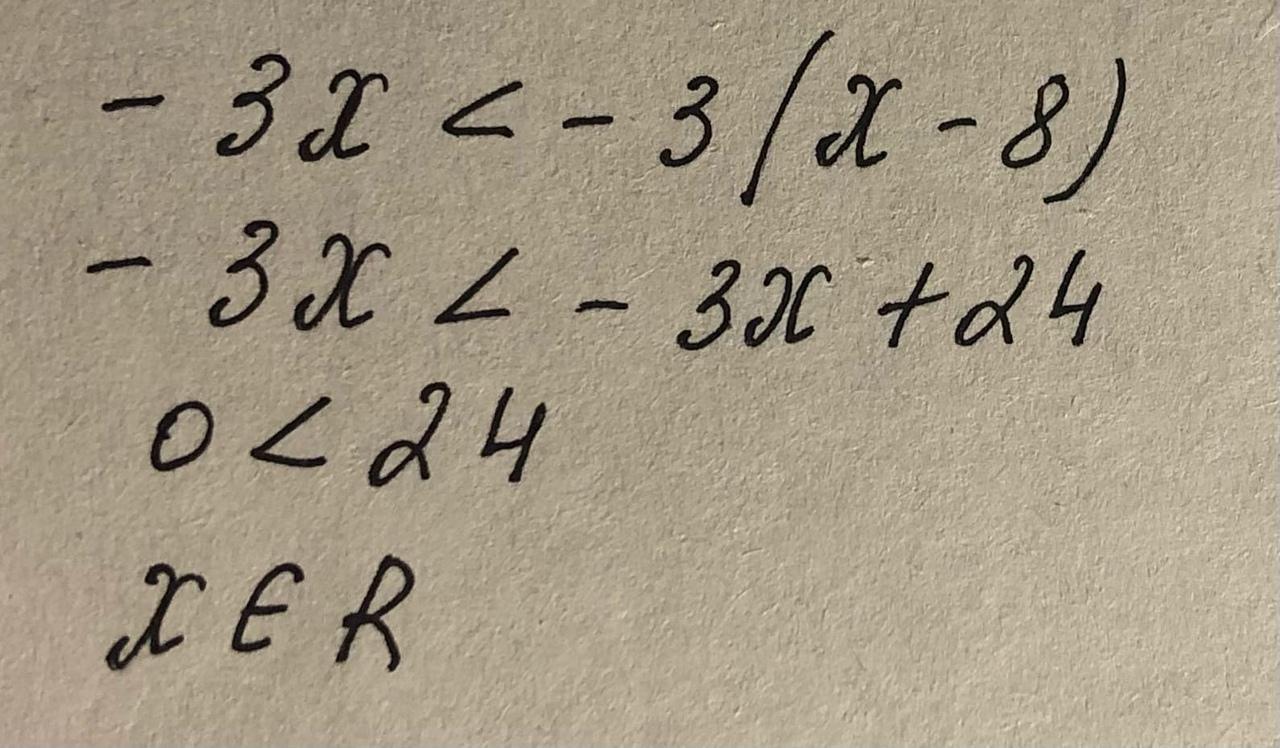 - 3x < - 3(x - 8)
- 3x < - 3x + 24
0 < 24
x ∈ R